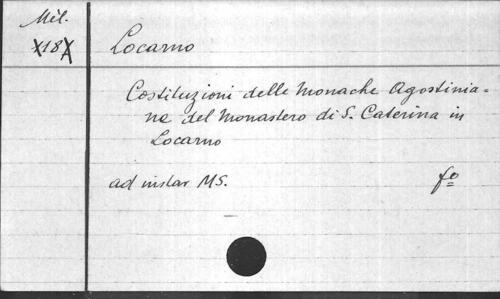 Mél.
X18A
Locarno
Costituzioni delle Monache Agostinia-
ne del Monastero di S. Caterina in
Locarno
ad instar MS. fo